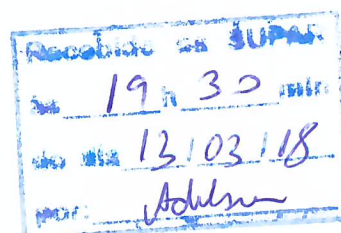 Recebido na SUPAR
às 19 h 30 min
do dia 13/03/18
por: Adelson